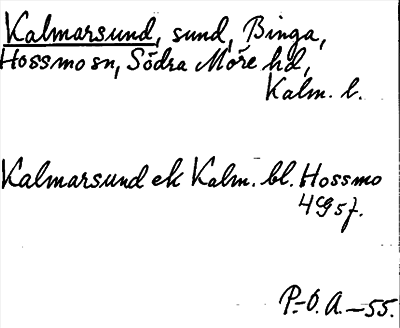 Kalmarsund, sund, Binga,
Hossmo sn, Södra Möre hd,
Kalm. l.
Kalmarsund ek Kalm. bl. Hossmo
4G9 57.
P.-O. A. - 55.